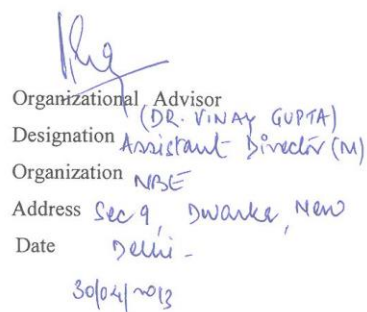 Organizational Advisor
(DR. VINAY GUPTA)
Designation Assistant Director (M)
Organization NBE
Address Sec 9, Dwarka, New
Date Delhi -
30/04/2013